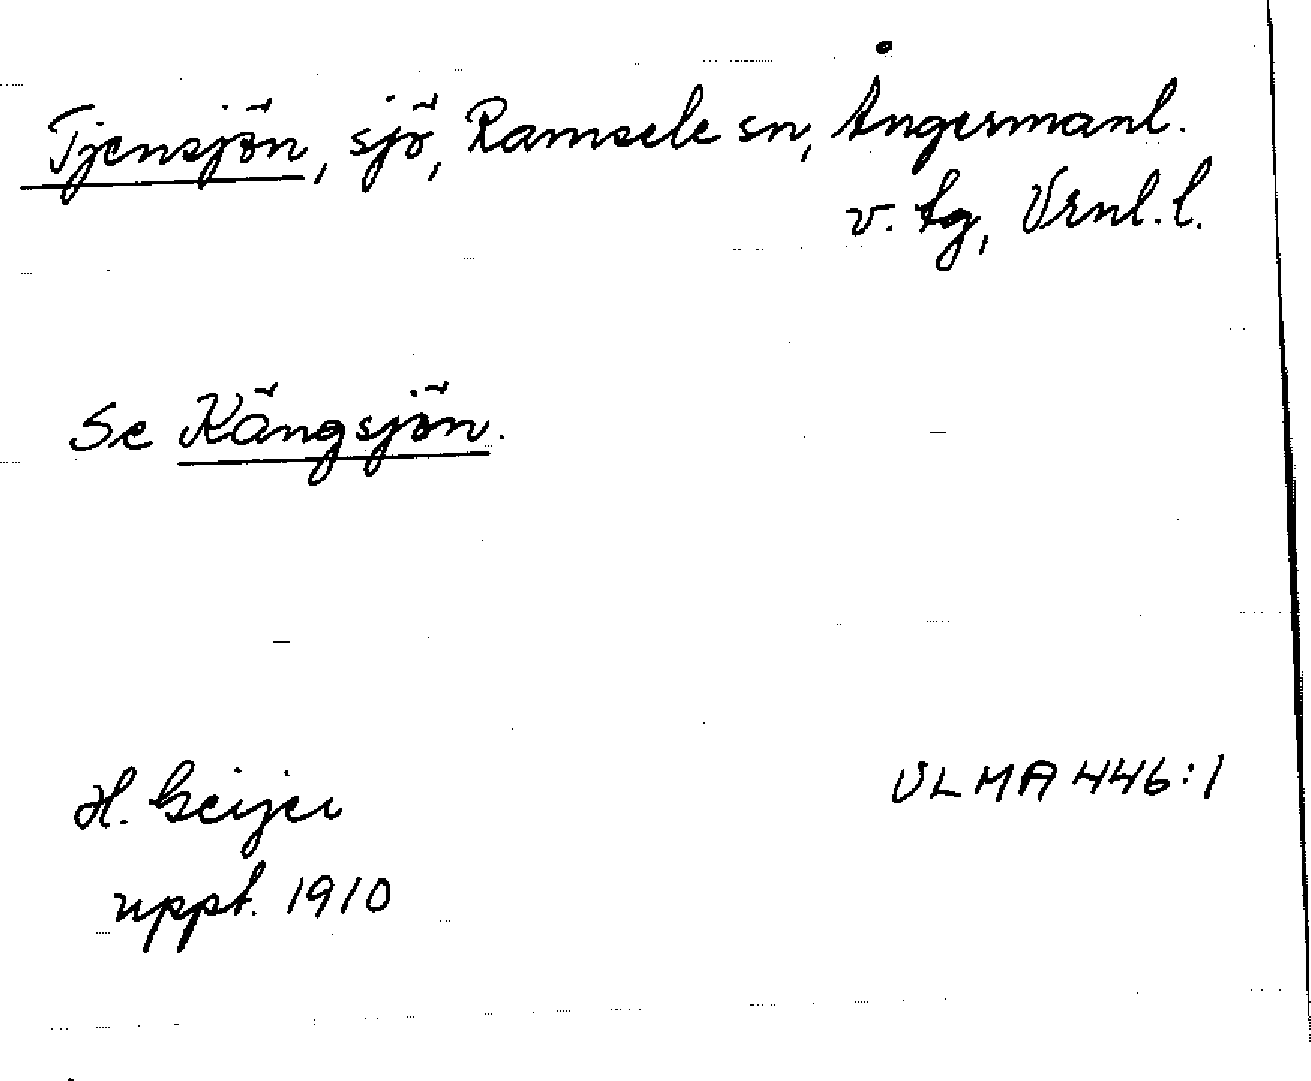 Tjensjön, sjö, Ramsele sn, Ångermanl.
v. tg, Vrnl. l.
Se Kängsjön.
H. Geijer
ULMA 446:1
uppt. 1910